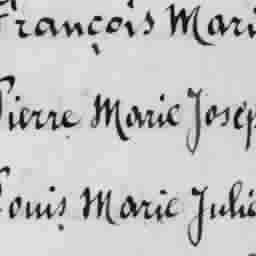 François Mari
Pierre Marie Josep
Louis Marie Julie